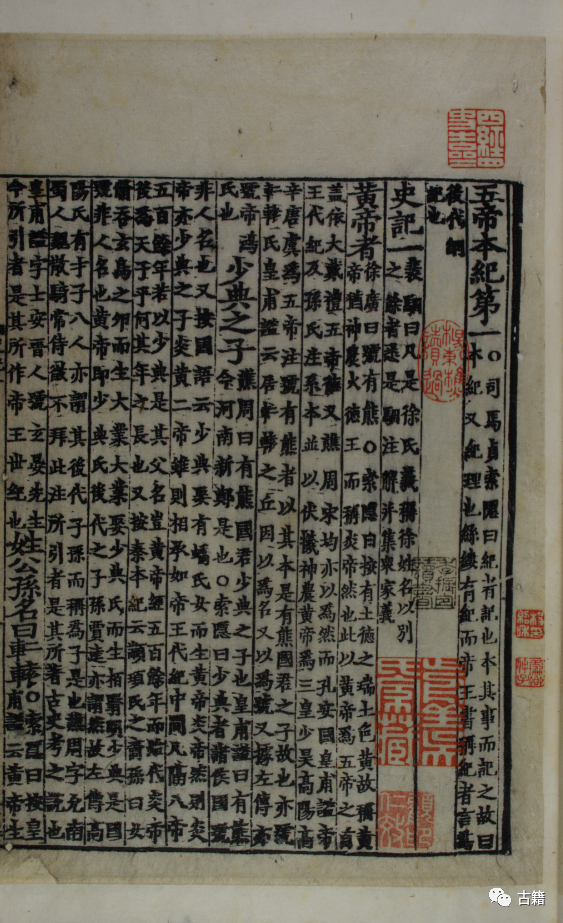 五帝本紀第一
〇司馬貞索隱曰紀者記也本其事而記之故曰
本紀又紀理也絲縷有紀而帝王書稱紀者言爲
後代綱
紀也
史記一
裴駰曰凡是徐氏義稱徐姓名以別
之餘者悉是駰注解并集衆家義
黃帝者
徐廣曰號有熊〇索隱曰按有土德之瑞土色黃故稱黃
帝猶神農火德王而稱炎帝然也此以黃帝爲五帝之首
蓋依大戴禮五帝德又譙周宋均亦以爲然而孔安國皇甫謐帝
王代紀及孫氏注系本並以伏犧神農黃帝爲三皇少昊高陽高
辛唐虞爲五帝注號有熊者以其本是有熊國君之子故也亦號
軒轅氏皇甫謐云居軒轅之丘因以爲名又以爲號又據左傳亦
號帝鴻
氏也
少典之子
譙周曰有熊國君少典之子也皇甫謐曰有熊
今河南新鄭是也〇索隱曰少典者諸侯國號
非人名也又按國語云少典娶有蟜氏女而生黃帝炎帝然則炎
帝亦少典之子炎黃二帝雖則相承如帝王代紀中間凡隔八帝
五百餘年若以少典是其父名豈黃帝經五百餘年而始代炎帝
後爲天子乎何其年之長也又按秦本紀云顓頊氏之裔孫曰女
脩吞玄鳥之卵而生大業大業娶少典氏而生柏翳明少典是國
號非人名也黃帝即少典氏後代之子孫賈逵亦謂然故左傳高
陽氏有才子八人亦謂其後代子孫而稱爲子是也譙周字允南
蜀人魏散騎常侍徵不拜此注所引者是其所著古史考之說也
皇甫謐字士安晉人號玄晏先生
今所引者是其所作帝王世紀也
姓公孫名曰軒轅
〇索隱曰按皇
甫謐云黃帝生
古籍